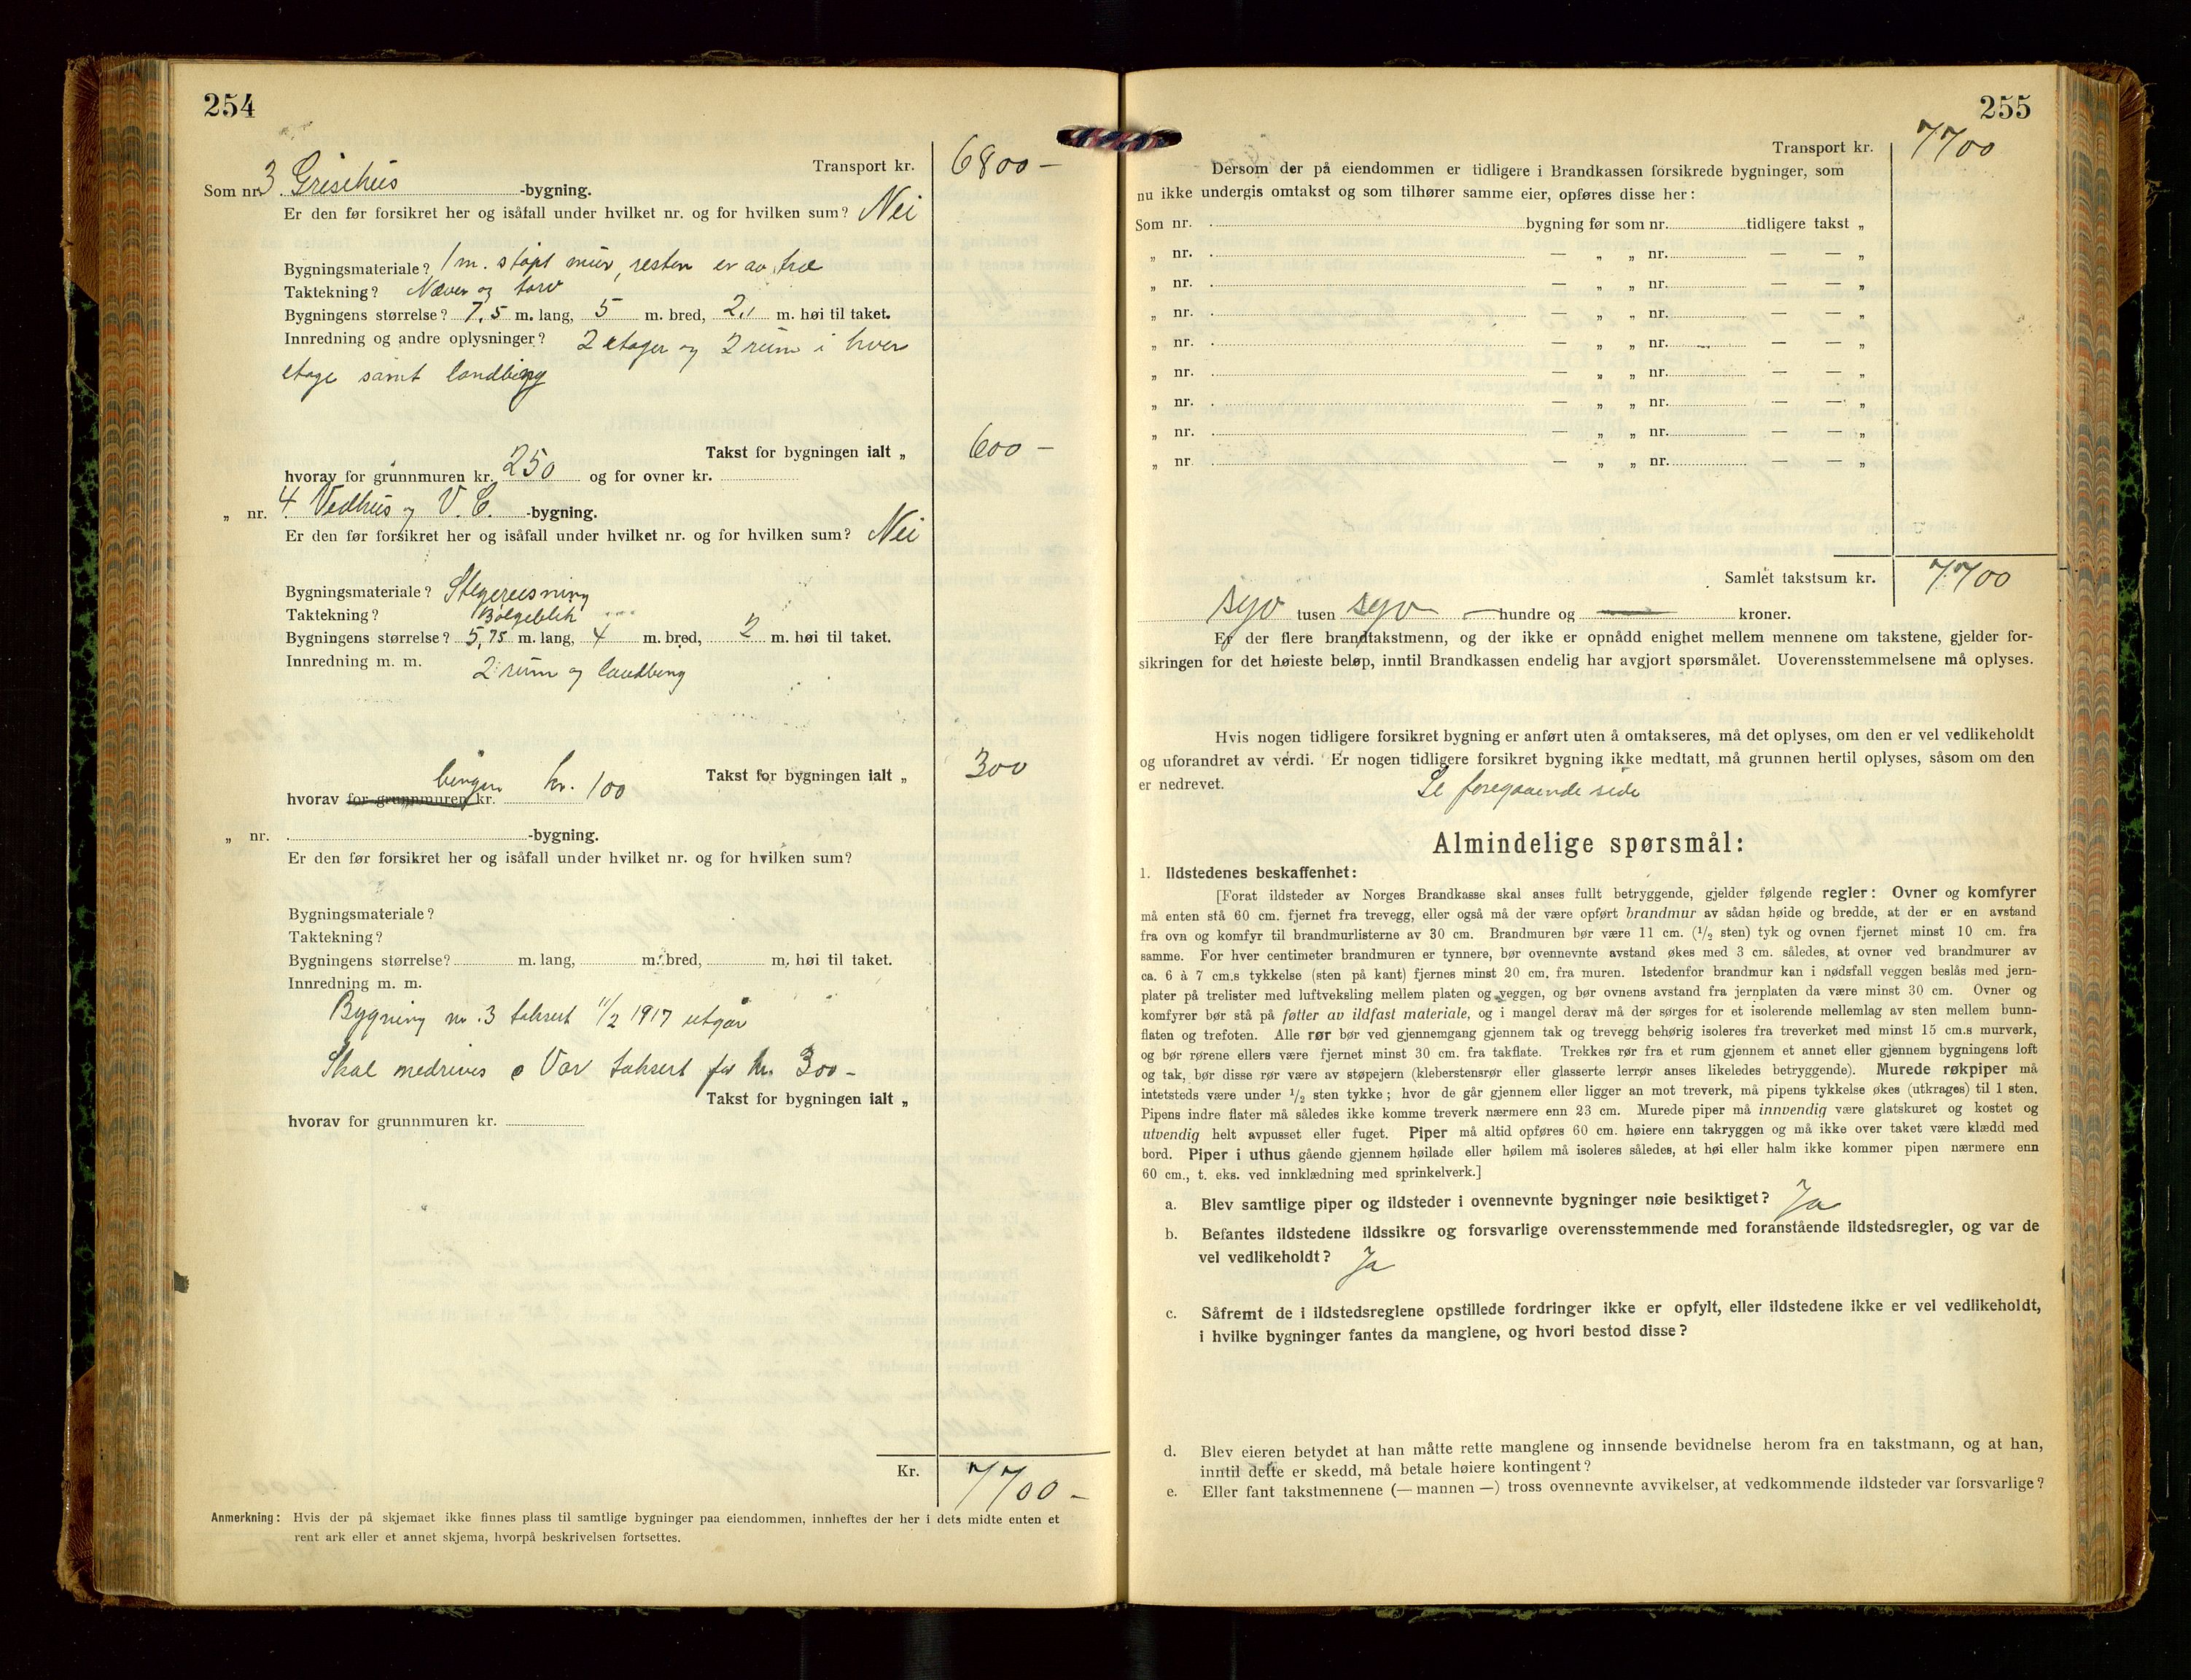 254
Transport kr. 6800 –
Som nr. 3 Grisehus -bygning.
Er den før forsikret her og isåfall under hvilket nr. og for hvilken sum? Nei
Bygningsmateriale? 1 m. støpt mur, resten er av træ
Taktekning? Næver og torv
Bygningens størrelse? 7,5 m. lang, 5 m. bred, 2,1 m. høi til taket.
Innredning og andre oplysninger? 2 etager og 2 rum i hver
etage samt landbeng
Takst for bygningen ialt „ 600 –
hvorav for grunnmuren kr. 250 og for ovner kr.
„ nr. 4. Vedhus og V. C. -bygning.
Er den før forsikret her og isåfall under hvilket nr. og for hvilken sum? Nei
Bygningsmateriale? Stegereisning
Taktekning? Bølgeblik
Bygningens størrelse? 5,75 m. lang, 4 m. bred, 2 m. høi til taket.
Innredning m. m. 2 rum og landbeng
Takst for bygningen ialt „ 300
hvorav for grunnmuren kr. bengen kr. 100
„ nr. -bygning.
Er den før forsikret her og isåfall under hvilket nr. og for hvilken sum?
Bygningsmateriale?
Taktekning?
Bygningens størrelse? m. lang, m. bred, m. høi til taket.
Innredning m. m.
Bygning nr. 3 taksert 11/2 1917 utgår
Skal nedrives Var taksert for kr. 300 –
Takst for bygningen ialt „
hvorav for grunnmuren kr.
Kr. 7700 –
Anmerkning: Hvis der på skjemaet ikke finnes plass til samtlige bygninger paa eiendommen, innheftes der her i dets midte enten et
rent ark eller et annet skjema, hvorpå beskrivelsen fortsettes.
255
Transport kr. 7700
Dersom der på eiendommen er tidligere i Brandkassen forsikrede bygninger, som
nu ikke undergis omtakst og som tilhører samme eier, opføres disse her:
Som nr. bygning før som nr. tidligere takst „
„ nr. — „ „ nr. — — „
„ nr. — „ „ nr. — — „
„ nr. — „ „ nr. — — „
„ nr. — „ „ nr. — — „
„ nr. — „ „ nr. — — „
„ nr. — „ „ nr. — — „
„ nr. — „ „ nr. — — „
„ nr. — „ „ nr. — — „
Samlet takstsum kr. 7700
syv tusen syv — hundre og — kroner.
Er der flere brandtakstmenn, og der ikke er opnådd enighet mellem mennene om takstene, gjelder for-
sikringen for det høieste beløp, inntil Brandkassen endelig har avgjort spørsmålet. Uoverensstemmelsene må oplyses.
Hvis nogen tidligere forsikret bygning er anført uten å omtakseres, må det oplyses, om den er vel vedlikeholdt
og uforandret av verdi. Er nogen tidligere forsikret bygning ikke medtatt, må grunnen hertil oplyses, såsom om den
er nedrevet. Se foregaaende side
Almindelige spørsmål:
1. Ildstedenes beskaffenhet:
[Forat ildsteder av Norges Brandkasse skal anses fullt betryggende, gjelder følgende regler: Ovner og komfyrer
må enten stå 60 cm. fjernet fra trevegg, eller også må der være opført brandmur av sådan høide og bredde, at der er en avstand
fra ovn og komfyr til brandmurlisterne av 30 cm. Brandmuren bør være 11 cm. (1/2 sten) tyk og ovnen fjernet minst 10 cm. fra
samme. For hver centimeter brandmuren er tynnere, bør ovennevnte avstand økes med 3 cm. således, at ovner ved brandmurer av
ca. 6 à 7 cm.s tykkelse (sten på kant) fjernes minst 20 cm. fra muren. Istedenfor brandmur kan i nødsfall veggen beslås med jern-
plater på trelister med luftveksling mellem platen og veggen, og bør ovnens avstand fra jernplaten da være minst 30 cm. Ovner og
komfyrer bør stå på føtter av ildfast materiale, og i mangel derav må der sørges for et isolerende mellemlag av sten mellem bunn-
flaten og trefoten. Alle rør bør ved gjennemgang gjennem tak og trevegg behørig isoleres fra treverket med minst 15 cm.s murverk,
og bør rørene ellers være fjernet minst 30 cm. fra takflate. Trekkes rør fra et rum gjennem et annet eller gjennem bygningens loft
og tak, bør disse rør være av støpejern (kleberstensrør eller glasserte lerrør anses likeledes betryggende). Murede røkpiper må
intetsteds være under 1/2 sten tykke; hvor de går gjennem eller ligger an mot treverk, må pipens tykkelse økes (utkrages) til 1 sten.
Pipens indre flater må således ikke komme treverk nærmere enn 23 cm. Murede piper må innvendig være glatskuret og kostet og
utvendig helt avpusset eller fuget. Piper må altid opføres 60 cm. høiere enn takryggen og må ikke over taket være klædd med
bord. Piper i uthus gående gjennem høilade eller høilem må isoleres således, at høi eller halm ikke kommer pipen nærmere enn
60 cm., t. eks. ved innklædning med sprinkelverk.]
a. Blev samtlige piper og ildsteder i ovennevnte bygninger nøie besiktiget? Ja
b. Befantes ildstedene ildssikre og forsvarlige overensstemmende med foranstående ildstedsregler, og var de
vel vedlikeholdt? Ja
c. Såfremt de i ildstedsreglene opstillede fordringer ikke er opfylt, eller ildstedene ikke er vel vedlikeholdt,
i hvilke bygninger fantes da manglene, og hvori bestod disse?
d. Blev eieren betydet at han måtte rette manglene og innsende bevidnelse herom fra en takstmann, og at han,
inntil dette er skedd, må betale høiere kontingent?
e. Eller fant takstmennene (— mannen —) tross ovennevnte avvikelser, at vedkommende ildsteder var forsvarlige?